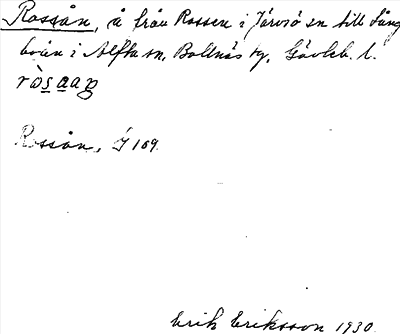 Rossån, å från Rossen i Järvsö sn till Lång
boån i Alfta sn, Bollnäs tg, Gävleb. l.
Rossån, J 169
Erik Eriksson 1930